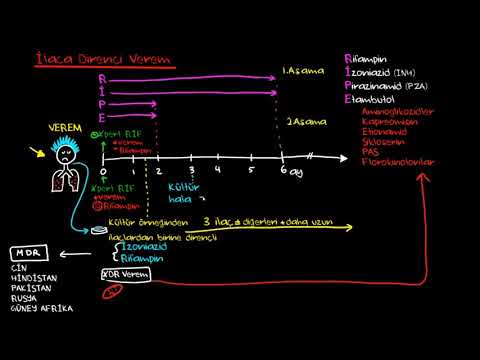 İlaca Direnci Verem
R
İ
P
E
1.Aşama
2.Aşama
Rifampin
İzoniazid (INH)
Pirazinamid (PZA)
Etambutol
Aminoglikozidler
Kapreomisin
Etionamid
Sikloserin
PAS
Florokinolonlar
VEREM
Xpert RIF
+verem
+Rifampin
0 1 2 3 4 5 6 ay
Xpert RIF
+verem
Rifampin
Kültür
hala
Kültür örneğinden
3 ilaç + diğerleri + daha uzun
ilaçlardan birine dirençli
İzoniazid
Rifampin
MDR
XDR Verem
ÇİN
HİNDİSTAN
PAKİSTAN
RUSYA
GÜNEY AFRİKA